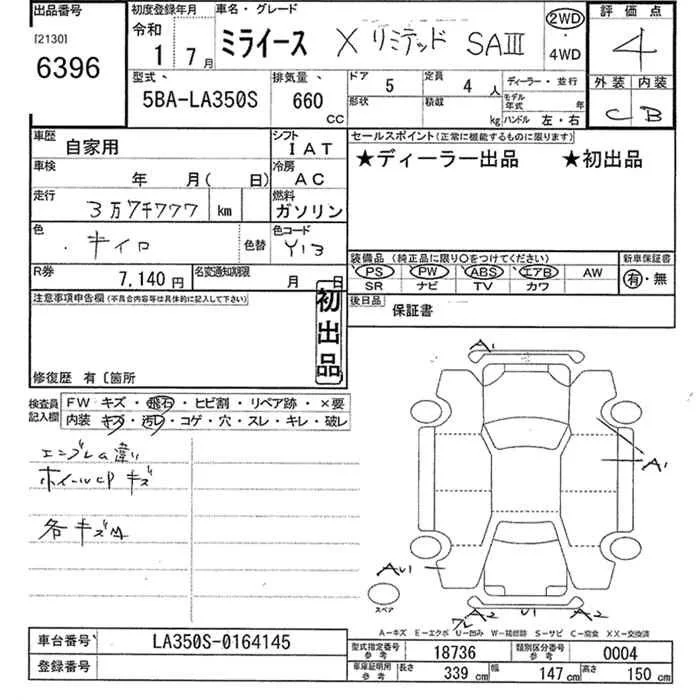 出品番号
[2130]
6396
初度登録年月
令和
1 7月
車名・グレード
ミライース X リミテッド SAⅢ
2WD
・
4WD
評価点
4
型式
5BA-LA350S
排気量
660
CC
ドア
5
定員
4人
形状
積載
kg
ディーラー・並行
モデル年式
年
ハンドル 左・右
外装 内装
C B
車歴
自家用
シフト
IAT
車検
年 月( 日)
冷房
AC
走行
3万7千777 km
燃料
ガソリン
色
キイロ
色替
色コード
Y13
R券
7,140円
名変通知期限
月 日
セールスポイント(正常に機能するものに限ります)
★ディーラー出品 ★初出品
装備品(純正品に限り○をつけてください)
PS PW ABS エアB AW
SR ナビ TV カワ
新車保証書
有・無
後日品
保証書
注意事項申告欄(不具合内容等は具体的に記入して下さい)
初出品
修復歴 有〔箇所
検査員記入欄
FW キズ・飛石・ヒビ割・リペア跡・×要
内装 キズ・汚レ・コゲ・穴・スレ・キレ・破レ
エンブレム違い
ホイールCPキズ
各キズ
A1
A1
AU1
A2
U1
A2
スペア
A-キズ E-エクボ U-凹み W-補修跡 S-サビ C-腐食 XX-交換済
車台番号
LA350S-0164145
登録番号
型式指定番号
参考
18736
類別区分番号
参考
0004
車庫証明用
参考
長さ
339 cm
幅
147 cm
高さ
150 cm